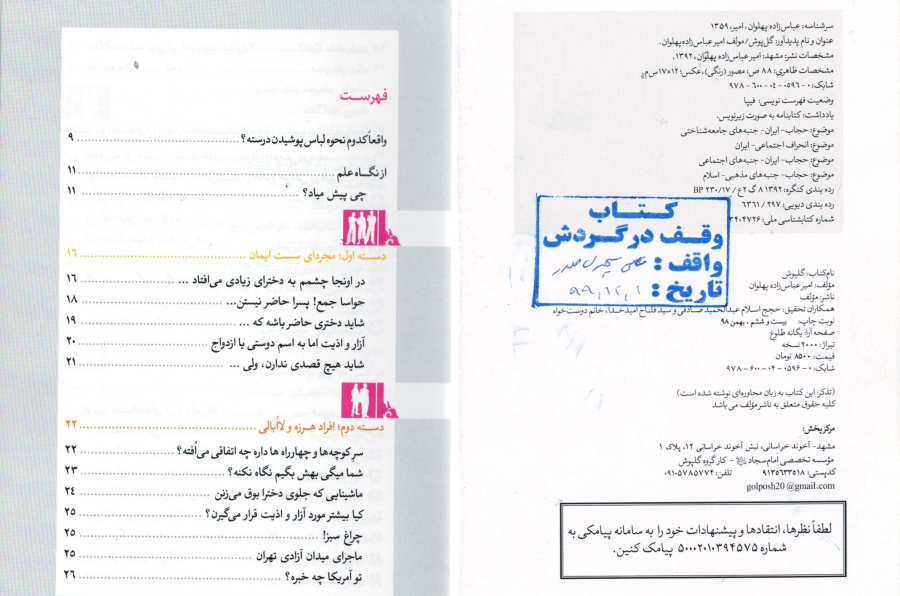 سرشناسه: عباس‌زاده پهلوان، امیر، ۱۳۵۹
عنوان و نام پدیدآور: گل‌پوش/ مولف امیر عباس‌زاده‌پهلوان.
مشخصات نشر: مشهد: امیر عباس‌زاده پهلوان، ۱۳۹۲.
مشخصات ظاهری: ۸۸ ص: مصور (رنگی)، عکس؛ ۱۲×۱۷س‌م
شابک: ۰-۰۵۹۶-۰۴-۶۰۰-۹۷۸
وضعیت فهرست نویسی: فیپا
یادداشت: کتابنامه به صورت زیرنویس.
موضوع: حجاب- ایران- جنبه‌های جامعه‌شناختی
موضوع: انحراف اجتماعی- ایران
موضوع: حجاب- ایران- جنبه‌های اجتماعی
موضوع: حجاب- جنبه‌های مذهبی- اسلام
رده بندی کنگره: ۱۳۹۲ ۸ گ ۲ ع/ ۲۳۰/۱۷ BP
رده بندی دیویی: ۲۹۷/ ۶۳۶۱
شماره کتابشناسی ملی: ۳۴۰۴۷۲۶
کتاب
وقف در گردش
واقف :
تاریخ : ۹۹,۱۲,۱
نام‌کتاب: گلپوش
مؤلف: امیر عباس‌زاده پهلوان
ناشر: مؤلف
همکاران تحقیق: حجج اسلام عبدالحمید صادقی و سید فتاح امیدخدا، خانم دوست‌خواه
نوبت چاپ: بیست و ششم ، بهمن ۹۸
صفحه آرا: یگانه طلوع
تیراژ: ۲۰۰۰ نسخه
قیمت: ۸۵۰۰ تومان
شابک: ۰-۰۵۹۶-۰۴-۶۰۰-۹۷۸
(تذکر: این کتاب به زبان محاوره‌ای نوشته شده است)
کلیه حقوق متعلق به ناشر مؤلف می باشد
مرکز پخش:
مشهد- آخوند خراسانی، نبش آخوند خراسانی ۱۲، پلاک ۱
مؤسسه تخصصی امام سجاد - کارگروه گلپوش
کدپستی: ۹۱۳۵۶۳۳۵۱۸ تلفن: ۰۹۱۰۵۷۸۵۷۷۴
golposh20@gmail.com
لطفاً نظرها، انتقادها و پیشنهادات خود را به سامانه پیامکی به
شماره ۵۰۰۰۲۰۱۰۳۹۴۵۷۵ پیامک کنین.
فهرست
واقعاً کدوم نحوه لباس پوشیدن درسته؟ ۹
از نگاه علم ۱۱
چی پیش میاد؟ ۱۱
دسته اول؛ مجردای سست ایمان ۱۶
در اونجا چشمم به دخترای زیادی می‌افتاد ... ۱۶
حواسا جمع! پسرا حاضر نیستن... ۱۸
شاید دختری حاضر باشه که ... ۱۹
آزار و اذیت اما به اسم دوستی یا ازدواج ۲۰
شاید هیچ قصدی ندارن، ولی ... ۲۱
دسته دوم؛ افراد هرزه و لاأبالی ۲۲
سر کوچه‌ها و چهارراه ها داره چه اتفاقی می‌اُفته؟ ۲۲
شما میگی بهش بگیم نگاه نکنه؟ ۲۳
ماشینایی که جلوی دخترا بوق می‌زنن ۲۴
کیا بیشتر مورد آزار و اذیت قرار می‌گیرن؟ ۲۵
چراغ سبز! ۲۵
ماجرای میدان آزادی تهران ۲۵
تو آمریکا چه خبره؟ ۲۶